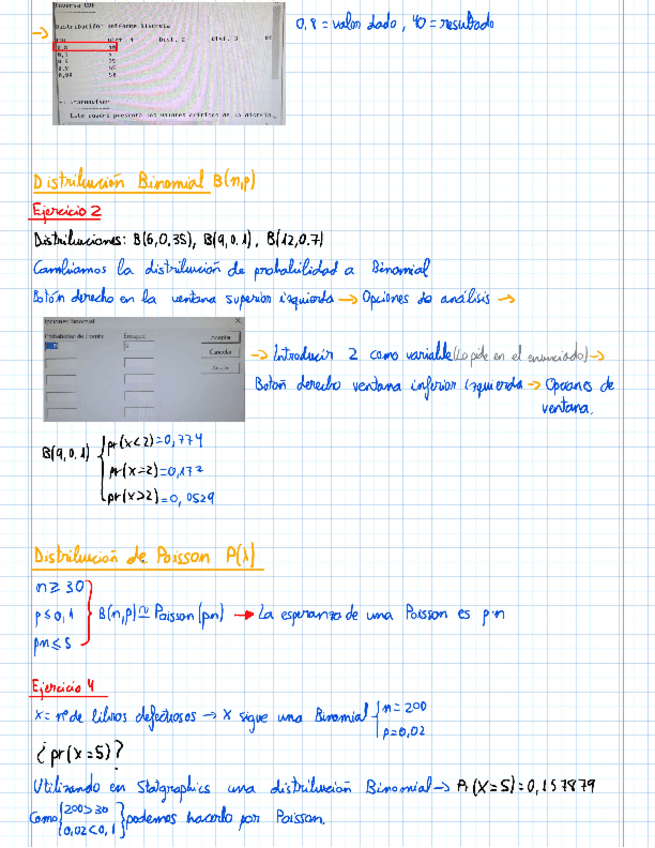 Inversa CDF
Distribución: Uniforme Discreta
0,8 = valor dado, 40 = resultado
0,8 40
Distribución Binomial B(n,p)
Ejercicio 2
Distribuciones: B(6,0.35), B(9,0.1), B(12,0.7)
Cambiamos la distribución de probabilidad a Binomial
Botón derecho en la ventana superior izquierda → Opciones de análisis →
Opciones Binomial
Probabilidad de Evento Ensayos
Aceptar
Cancelar
→ Introducir 2 como variable (Lo pide en el enunciado) →
Botón derecho ventana inferior izquierda → Opciones de
ventana.
B(9,0.1) { pr(x<2)=0,774
pr(x=2)=0,172
pr(x>2)=0,0529
Distribución de Poisson P(λ)
n ≥ 30
p ≤ 0,1 } B(n,p) ≃ Poisson(pn) → La esperanza de una Poisson es p·n
pn ≤ 5
Ejercicio 4
X = nº de libros defectuosos → X sigue una Binomial { n = 200
p = 0,02
¿pr(x=5)?
Utilizando en Statgraphics una distribución Binomial → Pr(X=5)=0,157879
Como { 200>30
0,02<0,1 } podemos hacerlo por Poisson.